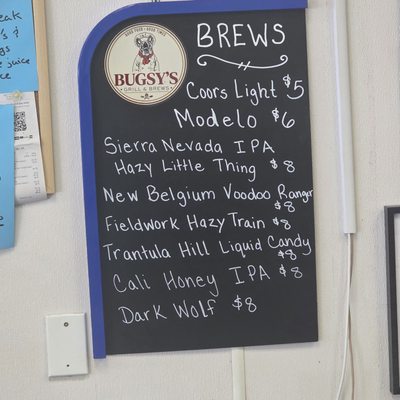 GOOD FOOD • GOOD TIMES
BUGSY'S
GRILL & BREWS
BREWS
Coors Light $5
Modelo $6
Sierra Nevada IPA
Hazy Little Thing $8
New Belgium Voodoo Ranger
$8
Fieldwork Hazy Train $8
Trantula Hill Liquid Candy
$8
Cali Honey IPA $8
Dark Wolf $8
eak
's &
gs
juice
ce